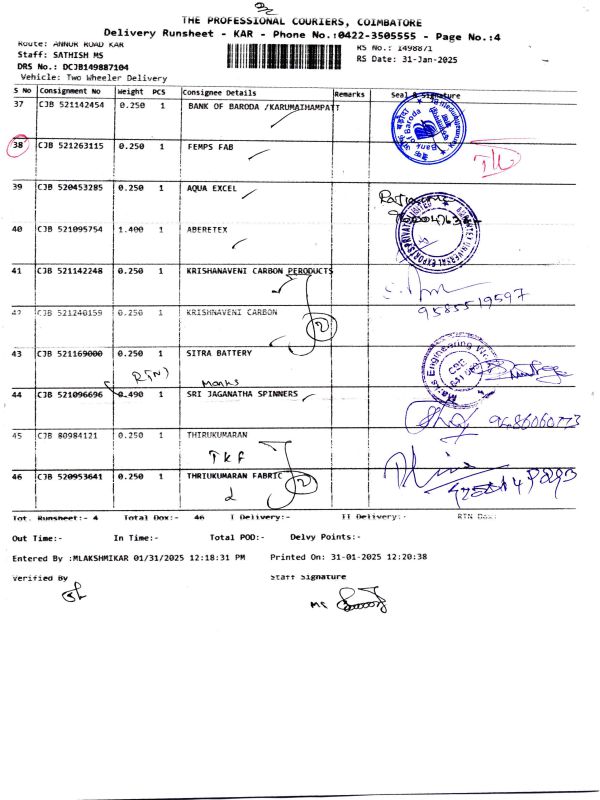 THE PROFESSIONAL COURIERS, COIMBATORE
Delivery Runsheet - KAR - Phone No.:0422-3505555 - Page No.:4
Route: ANNUR ROAD KAR
Staff: SATHISH MS
DRS No.: DCJB149887104
Vehicle: Two Wheeler Delivery
RS No.: 1498871
RS Date: 31-Jan-2025
S No Consignment No Weight PCS Consignee Details Remarks Seal & Signature
37 CJB 521142454 0.250 1 BANK OF BARODA /KARUMATHAMPATT
38 CJB 521263115 0.250 1 FEMPS FAB
39 CJB 520453285 0.250 1 AQUA EXCEL
40 CJB 521095754 1.400 1 ABERETEX
41 CJB 521142248 0.250 1 KRISHANAVENI CARBON PERODUCTS
9585519597
42 CJB 521240159 0.250 1 KRISHNAVENI CARBON
2
43 CJB 521169000 0.250 1 SITRA BATTERY
RTN) Marks
44 CJB 521096696 0.490 1 SRI JAGANATHA SPINNERS
9486060773
45 CJB 80984121 0.250 1 THIRUKUMARAN
TKF
46 CJB 520953641 0.250 1 THRIUKUMARAN FABRIC
2
Tot. Runsheet:- 4 Total Dox:- 46 I Delivery:- II Delivery:- RTN Dox:
Out Time:- In Time:- Total POD:- Delvy Points:-
Entered By :MLAKSHMIKAR 01/31/2025 12:18:31 PM Printed On: 31-01-2025 12:20:38
Verified By Staff Signature